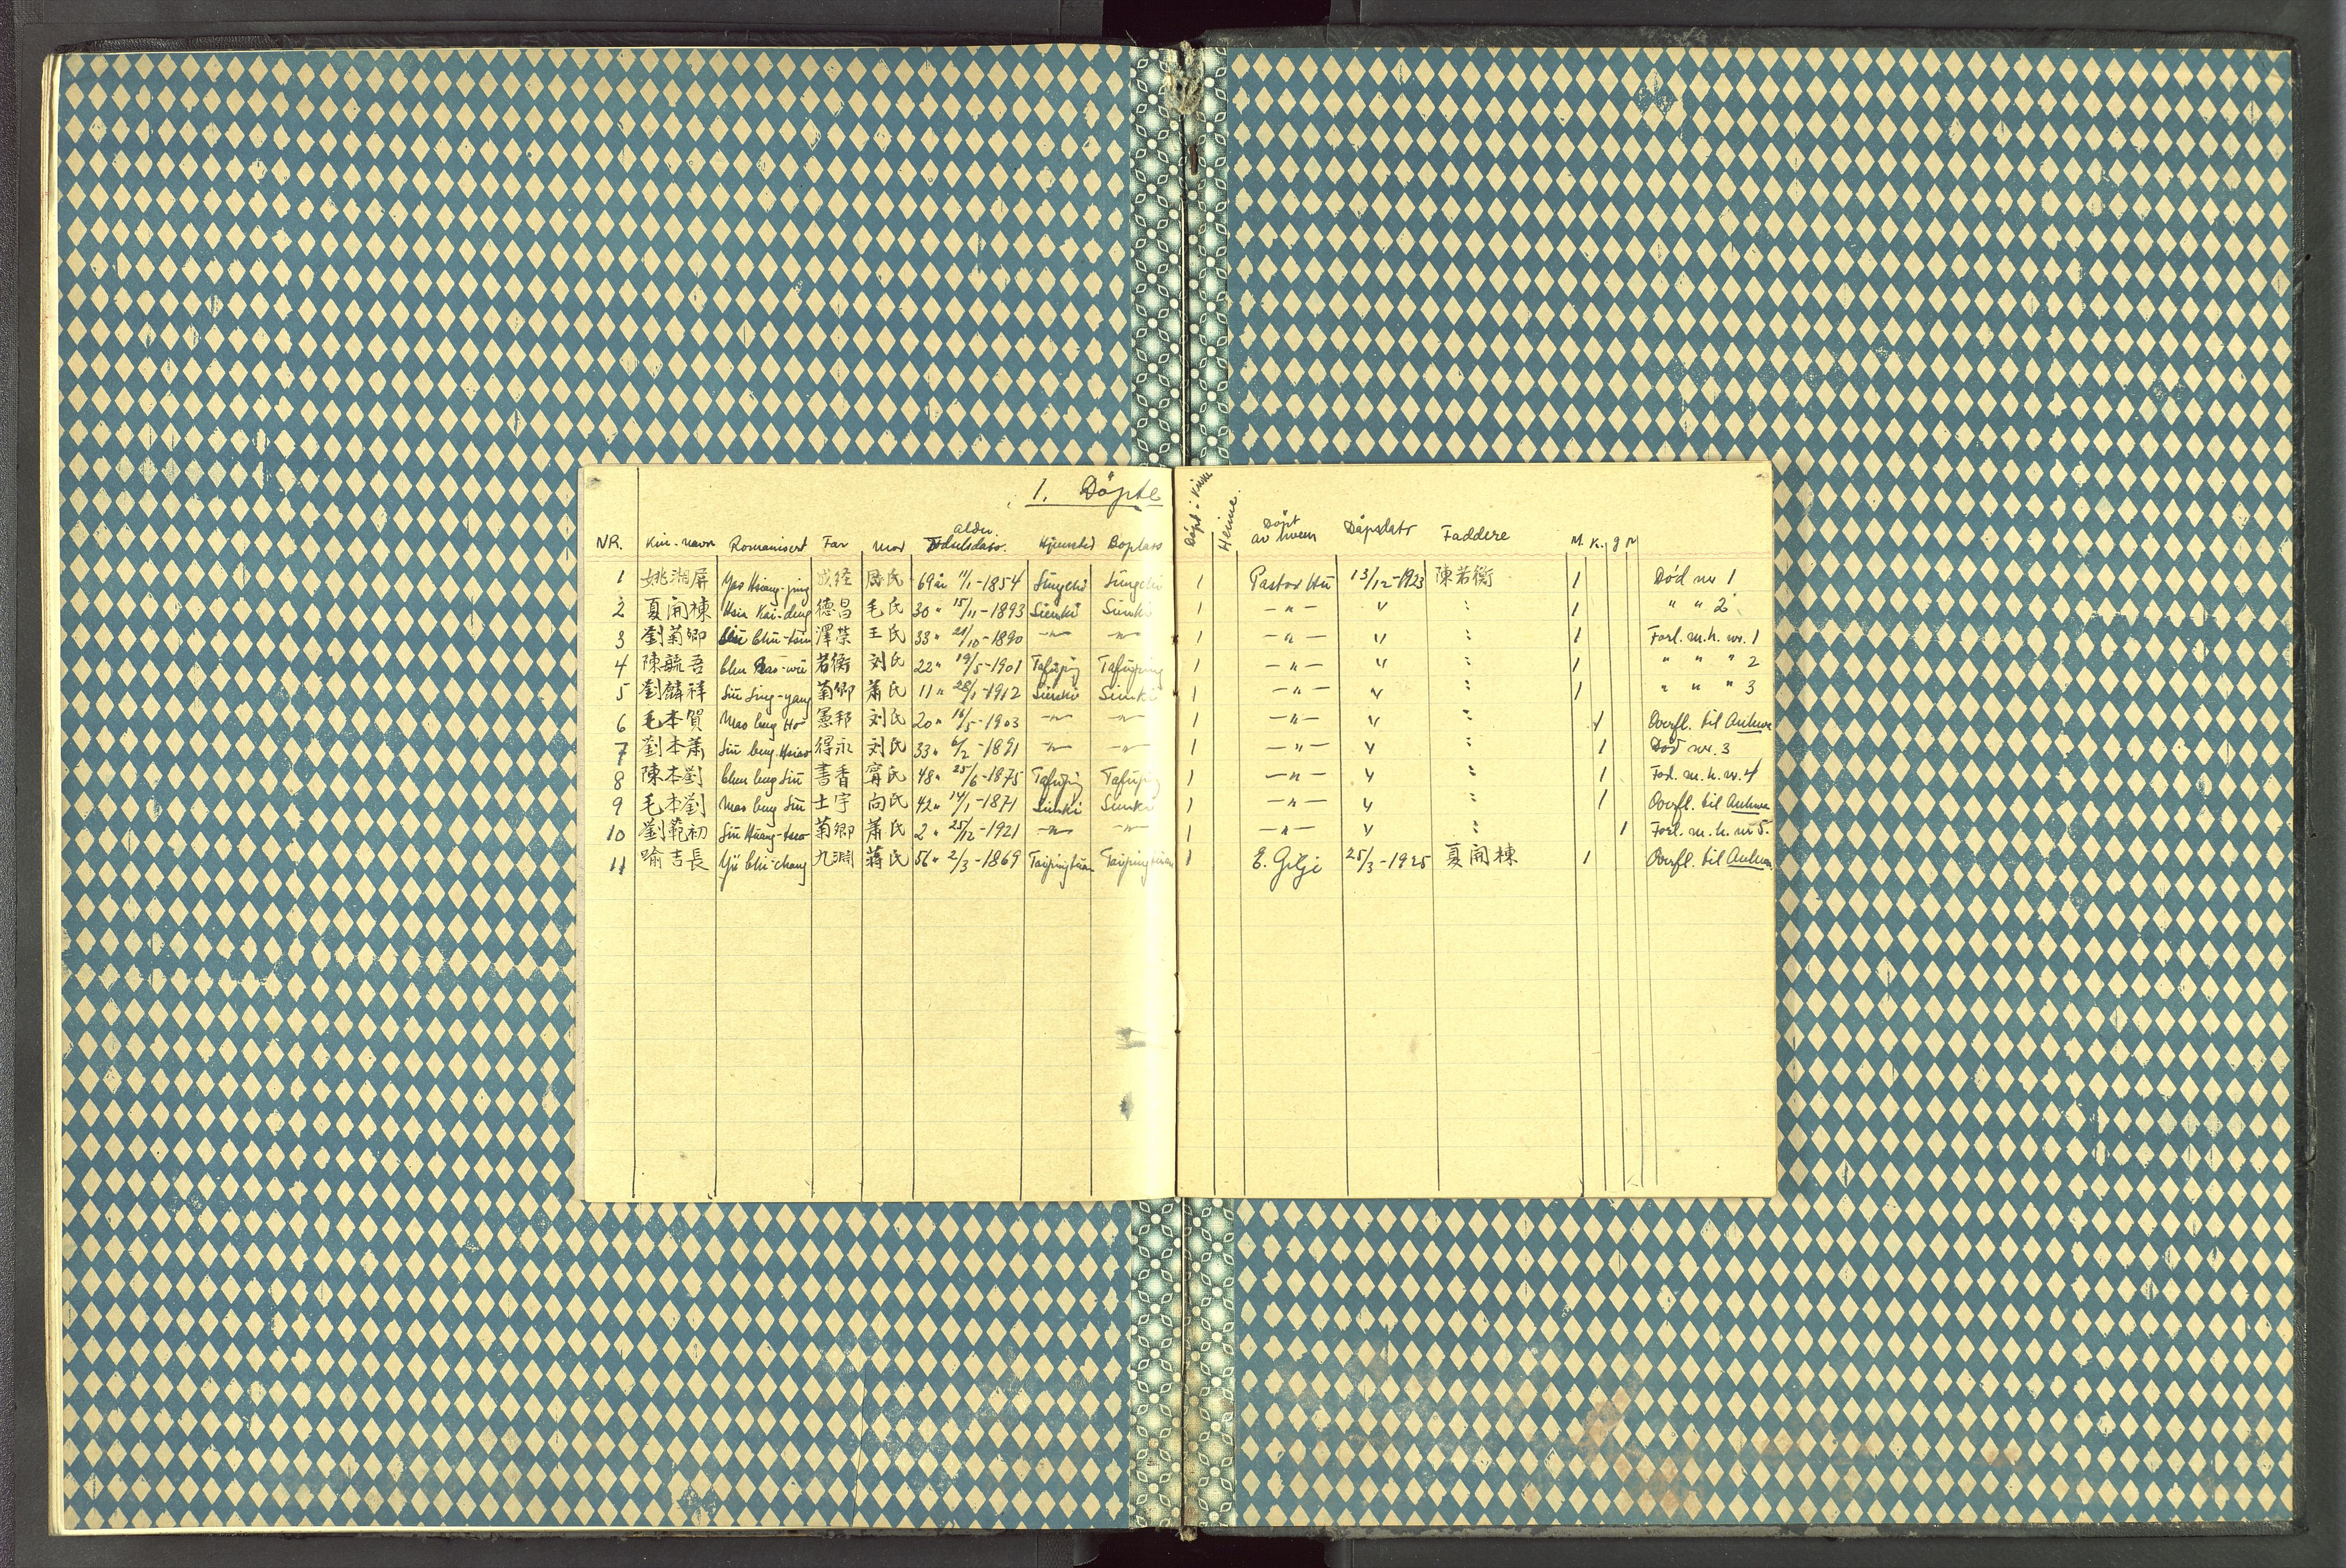 1. Döpte
NR. Kin. navn Romanisert Far Mor Alder Fødselsdato. Hjemsted Boplass Döpt i Kirke Heime. Döpt av hvem Dåpsdato Faddere M. K. g P
1 姚湘屏 Yao Hsiang-ping 成経 周氏 69 år 11/1-1854 1 Pastor Hü 13/12-1923 陳若衡 1 Död nr 1
2 夏開棟 Hsia Kai-ding 德昌 毛氏 30 " 15/11-1893 Sinki Sinki 1 -"- " : 1 " " 2
3 劉菊卿 澤榮 王氏 33 " 21/10-1890 -"- -"- 1 -"- " : 1 Forl. m.h. nr. 1
4 陳毓吾 若衡 刘氏 22 " 19/5-1901 Tafuping Tafuping 1 -"- " : 1 " " " 2
5 劉麟祥 菊卿 蕭氏 11 " 28/1-1912 Sinki Sinki 1 -"- " : 1 " " " 3
6 毛本賀 Mao beng Ho 憲邦 刘氏 20 " 16/5-1903 -"- -"- 1 -"- " : 1 Overfl. til Anhwa
7 劉本蕭 Liu beng Hsiao 得永 刘氏 33 " 6/2-1891 -"- -"- 1 -"- " : 1 Död nr. 3
8 陳本劉 Chen beng Liu 書香 甯氏 48 " 25/6-1875 Tafuping Tafuping 1 -"- " : 1 Forl. m.h. nr. 4
9 毛本劉 Mao beng Liu 士宇 向氏 42 " 14/1-1871 Sinki Sinki 1 -"- " : 1 Overfl. til Anhwa
10 劉範初 菊卿 蕭氏 2 " 25/12-1921 -"- -"- 1 -"- " : 1 Forl. m.h. nr 5.
11 喻吉長 Yü Chi-chang 九淵 蒋氏 56 " 2/3-1869 1 E. Gilje 25/3-1925 夏開棟 1 Overfl. til Anhwa